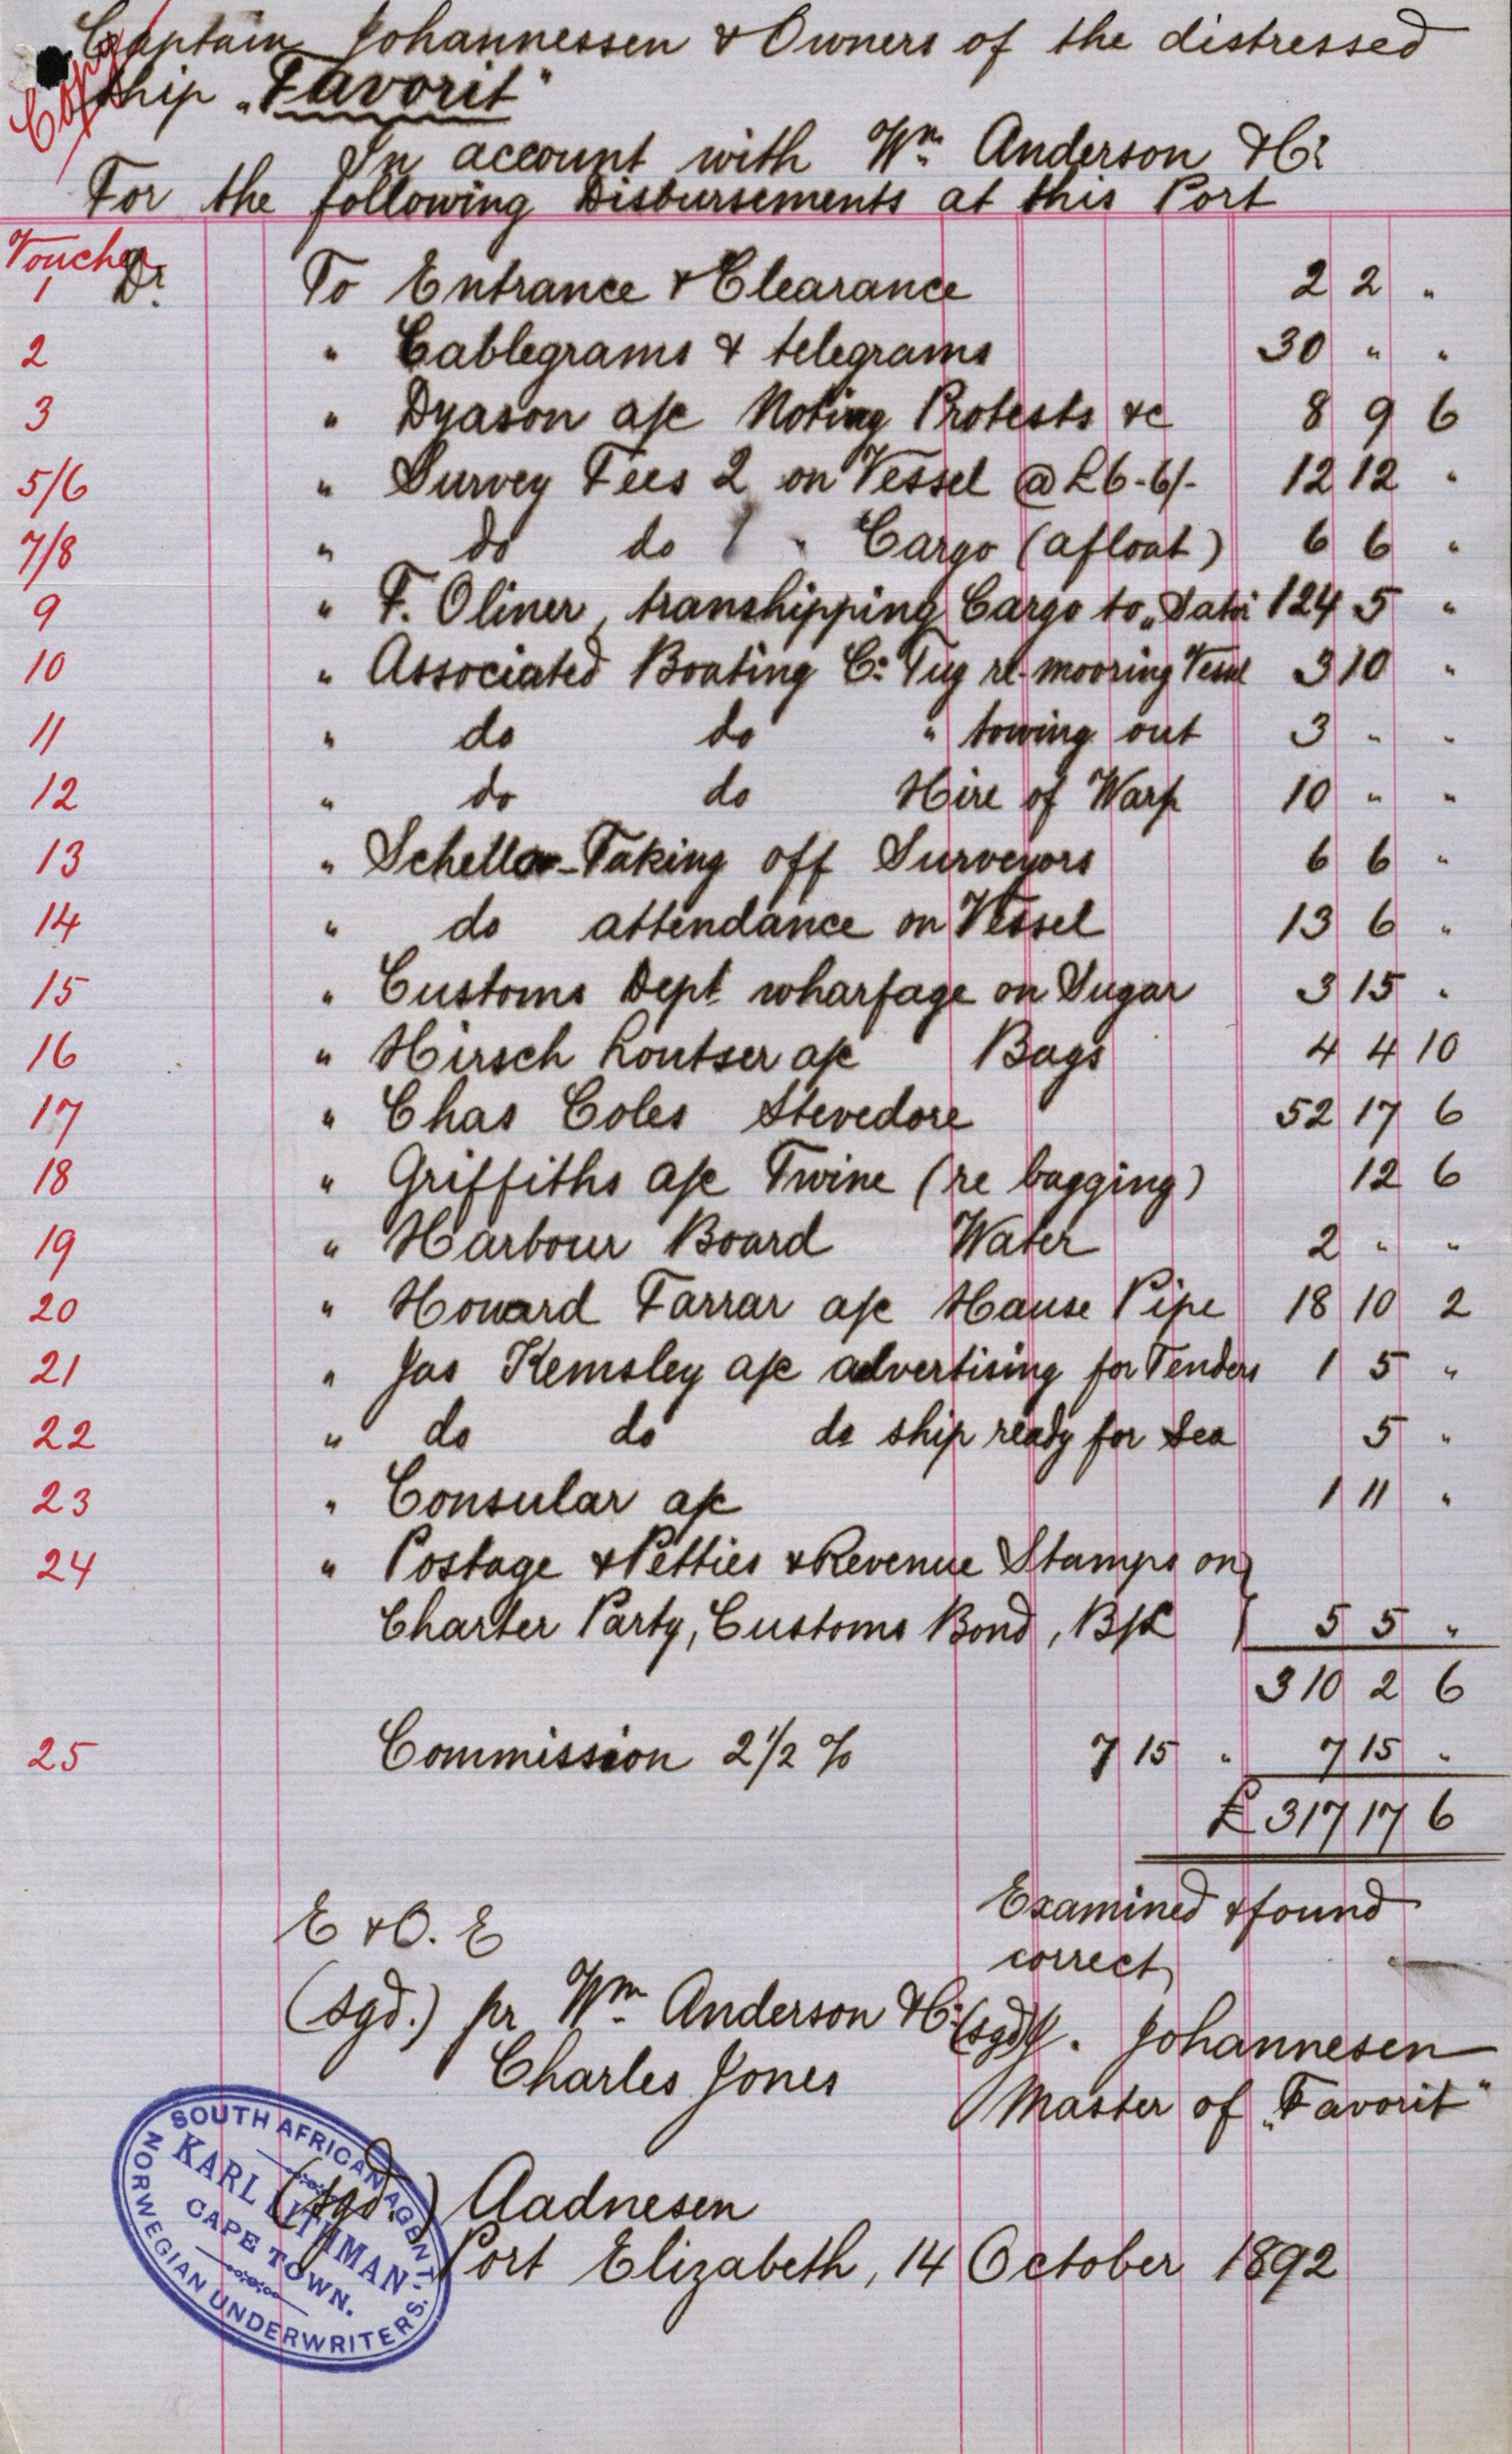 Copy
Captain Johannessen & Owners of the distressed
ship "Favorit"
In account with Wm. Anderson & Co
For the following Disbursements at this Port
Voucher
1 Dr. To Entrance & Clearance 2 2 "
2 " Cablegrams & telegrams 30 " "
3 " Dyason a/c Noting Protests &c 8 9 6
5/6 " Survey Fees 2 on Vessel @ £6-6/- 12 12 "
7/8 " do do 1 " Cargo (afloat) 6 6 "
9 " F. Oliner, transhipping Cargo to 124 5 "
10 " Associated Boating Co. Tug re-mooring Vessel 3 10 "
11 " do do " towing out 3 " "
12 " do do Hire of Warp 10 " "
13 " Taking off Surveyors 6 6 "
14 " do attendance on Vessel 13 6 "
15 " Customs Dept. wharfage on Sugar 3 15 "
16 " Hirsch Loutser a/c Bags 4 4 10
17 " Chas Coles Stevedore 52 17 6
18 " Griffiths a/c Twine (re bagging) 12 6
19 " Harbour Board Water 2 " "
20 " Howard Farrar a/c Hause Pipe 18 10 2
21 " Jas Kemsley a/c advertising for Tenders 1 5 "
22 " do do do ship ready for Sea 5 "
23 " Consular a/c 1 11 "
24 " Postage & Petties & Revenue Stamps on
Charter Party, Customs Bond, B/L 5 5 "
310 2 6
25 Commission 2 1/2 % 7 15 " 7 15 "
£ 317 17 6
E & O. E
(sgd.) pr Wm. Anderson & Co.
Charles Jones
Examined & found
correct
(sgd) J. Johannesen
Master of "Favorit"
(sgd.) Aadnesen
Port Elizabeth, 14 October 1892
SOUTH AFRICAN AGENT.
KARL LITHMAN.
CAPE TOWN.
NORWEGIAN UNDERWRITERS.